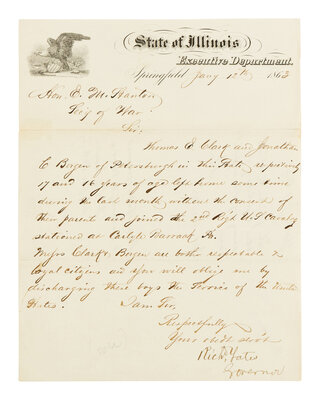 State of Illinois
Executive Department.
Springfield Jany 12th 1863
Hon. E. M. Stanton
Secy of War
Sir:
Thomas E Clary and Jonathan
E Bogen of Petersburgh in this State respectively
17 and 16 years of age left home some time
during the last month without the consent of
their parent and joined the 2nd Regt U S Cavalry
stationed at Carlyle Barrack Pa.
Messrs Clary & Bogen are both respectable &
loyal citizens and you will oblige me by
discharging these boys the Service of the United
States. I am Sir,
Respectfully
Your obdt servt
Richd Yates
Governor